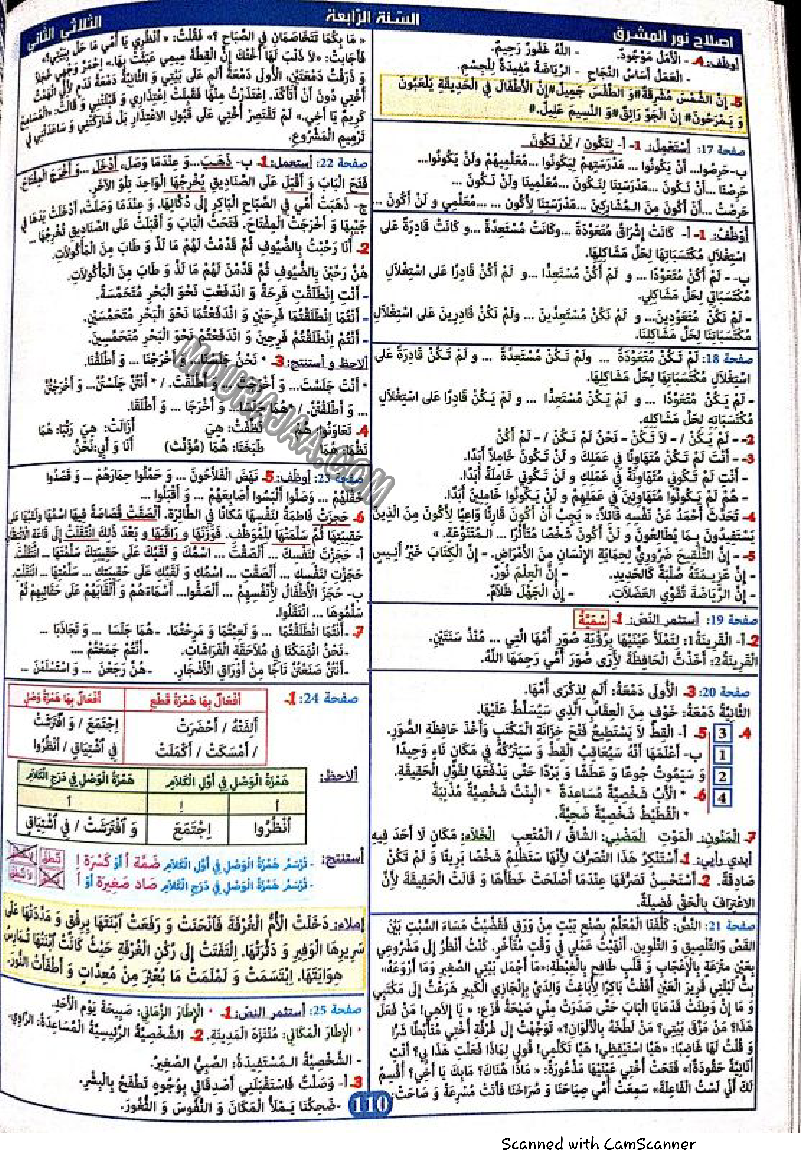 اصلاح نور المشرق
السنة الرابعة
الثلاثي الثاني
أوظف: 4- - الأمل موجود. - الله غفور رحيم.
- العمل أساس النجاح - الرياضة مفيدة للجسم.
5- إن الشمس مشرقة# و الطقس جميل# إن الأطفال في الحديقة يلعبون
و يمرحون# إن الجو رائق# و النسيم عليل.#
صفحة 17: أستعمل: 1- أ- لتكون / لن تكون
ب- حرصوا... أن يكونوا ... مدرستهم ليكونوا ...معلميهم ولن يكونوا...
حرصنا ...أن نكون ...مدرستنا لنكون ...معلمينا ولن نكون ...
حرصت ...أن أكون من المشاركين ...مدرستنا لأكون ... ...معلمي و لن أكون ...
أوظف: 1- أ- كانت إشراق متعودة ...وكانت مستعدة ...و كانت قادرة على
استغلال مكتسباتها لحل مشاكلها.
ب- لم أكن متعودا ... و لم أكن مستعدا ...و لم أكن قادرا على استغلال
مكتسباتي لحل مشاكلي.
- لم نكن متعودين... و لم نكن مستعدين ... ولم نكن قادرين على استغلال
مكتسباتنا لحل مشاكلنا.
صفحة 18: لم تكن متعودة ... ولم تكن مستعدة ... و لم تكن قادرة على
استغلال مكتسباتها لحل مشاكلها.
- لم يكن متعودا ... و لم يكن مستعدا ... و لم يكن قادرا على استغلال
مكتسباته لحل مشاكله.
2- - لم يكن / - لا تكن - نحن لم نكن / - لم أكن
3- - أنت لم تكن متهاونا في عملك و لن تكون خاملا أبدا.
- أنت لم تكوني متهاونة في عملك و لن تكوني خاملة أبدا.
- هم لم يكونوا متهاونين في عملهم و لن يكونوا خاملين أبدا.
4- تحدث أحمد عن نفسه قائلا: « يجب أن أكون قارئا واعيا لأكون من الذين
يستفيدون بما يطالعون و لن أكون شخصا متأثرا ...المتنوعة. »
5- - إن التلقيح ضروري لحماية الإنسان من الأمراض. - إن الكتاب خير أنيس
- إن عزيمته صلبة كالحديد. - إن العلم نور.
- إن الرياضة تقوي العضلات. - إن الجهل ظلام.
صفحة 19: أستثمر النص: 1- سمية
2- أ- القرينة1: لتملأ عينيها برؤية صور أمها التي ... منذ سنتين.
القرينة2: أخذت الحافظة لأرى صور أمي رحمها الله.
صفحة 20: 3- الأولى دمعة: ألم لذكرى أمها.
الثانية دمعة: خوف من العقاب الذي سيسلط عليها.
4- 3 5- أ- القط لا يستطيع فتح خزانة المكتب وأخذ حافظة الصور.
1 ب- أعلمها أنه سيعاقب القط و سيتركه في مكان ناء وحيدا
2 و سيموت جوعا و عطشا و بردا حتى يدفعها لقول الحقيقة.
4 6- * الأب شخصية مساعدة * البنت شخصية مذنبة
* القطيط شخصية ضحية.
7- المنون: الموت المضني: الشاق / المتعب الخلاء: مكان لا أحد فيه
أبدي رأيي: 1- أستنكر هذا التصرف لأنها ستظلم شخصا بريئا و لم تكن
صادقة. 2- أستحسن تصرفها عندما أصلحت خطأها و قالت الحقيقة لأن
الاعتراف بالحق فضيلة.
صفحة 21: النص: كلفنا المعلم بصنع بيت من ورق فقضيت مساء السبت بين
القص والتلصيق و التلوين. أنهيت عملي في وقت متأخر. كنت أنظر إلى مشروعي
بعين مترعة بالإعجاب و قلب طافح بالغبطة:«ما أجمل بيتي الصغير وما أروعه،»
بت ليلتي قرير العين أفقت باكرا لأباغت والدي بإنجازي الكبير هرعت إلى مكتبي
و ما إن وطئت قدمايا الباب حتى صدرت مني صيحة فزع: « يا إلاهي! من فعل
هذا؟ من مزق بيتي؟ من لطخه بالألوان؟» توجهت إلى غرفة أختي متأبطا شرا
و قلت لها غاضبا: «هيا استيقظي! هيا تكلمي! قولي لماذا فعلت هذا بي؟ أنت
أنانية حقودة!» فتحت أختي عينيها مذعورة: « ماذا هناك؟ مابك يا أخي؟ أقسم
لك أني لست الفاعلة» سمعت أمي صياحنا و صراخنا فأتت مسرعة و صاحت:
« ما بكما تتخاصمان في الصباح ؟» فقلت: « أنظري يا أمي ما حل ببيتي!»
فأجابت: «لا ذنب لها أختك إن القطة ميمي عبثت بها.» احمر وجهي خجلا
و ذرفت دمعتين، الأولى دمعة ألم على بيتي و الثانية دمعة ندم لأني اتهمت
أختي دون أن أتأكد. اعتذرت منها فقبلت اعتذاري و قبلتني و قالت: «المسامح
كريم يا أخي.» لم تقتصر أختي على قبول الاعتذار بل شاركتني و ساعدتني في
ترميم المشروع.
صفحة 22: أستعمل: 1- ب- ذهب ...و عندما وصل، أدخل ...و أخرج المفتاح.
فتح الباب و أقبل على الصناديق يخرجها الواحد تلو الآخر.
ج- ذهبت أمي في الصباح الباكر إلى دكانها. و عندما وصلت، أدخلت يدها في
جيبها و أخرجت المفتاح. فتحت الباب و أقبلت على الصناديق تخرجها ...
2- أنا رحبت بالضيوف ثم قدمت لهم ما لذ و طاب من المأكولات.
هن رحبن بالضيوف ثم قدمن لهم ما لذ و طاب من المأكولات.
- أنت انطلقت فرحة و اندفعت نحو البحر متحمسة.
- أنتما انطلقتما فرحين و اندفعتما نحو البحر متحمسين.
- أنتم انطلقتم فرحين و اندفعتم نحو البحر متحمسين.
ألاحظ و أستنتج: 3- * نحن جلسنا... و أخرجنا ... و أطلقنا.
* أنت جلست... و أخرجت ... و أطلقت. / * أنتن جلستن... و أخرجتن
... و أطلقتن. / * هما جلسا... و أخرجا ... و أطلقا.
4- تعاونوا: هم نظفت: هي أزالت: هي رتبا: هما
نظما: هما طبختا: هما (مؤنث) أنا و أبي: نحن
صفحة 23: أوظف: 5- نهض الفلاحون ... و حملوا حمارهم ... و قصدوا
حقلهم ... وصلوا ألبسوا أصابعهم ... و أقبلوا ...
6- حجزت فاطمة لنفسها مكانا في الطائرة. ألصقت قصاصة فيها اسمها ولقبها على
حقيبتها ثم سلمتها للموظف. فوزنها و راقبها و بعد ذلك انتقلت إلى قاعة الانتظار
أ- حجزت لنفسك ... ألصقت ... اسمك و لقبك على حقيبتك سلمتها ... انتقلت.
حجزت لنفسك ... ألصقت ... اسمك و لقبك على حقيبتك ... سلمتها ... انتقلت.
ب- حجز الأطفال لأنفسهم ... ألصقوا... أسماءهم و ألقابهم على حقائبهم ثم
سلموها ... انتقلوا.
7- - أنتما انطلقتما ... و لعبتما و مرحتما. - هما جلسا ... و تجاذبا ...
- نحن انهمكنا في ملاحقة الفراشات. - أنتم جمعتم ...
- أنتن صنعتن تاجا من أوراق الأشجار. - هن رجعن ... و استسلمن ...
صفحة 24: 1-
أفعال بها همزة قطع
أفعال بها همزة وصل
ألفته / أحضرت
/ أمسكت / أكملت
اجتمع / و افترشت
في اشتياق / انظروا
ألاحظ:
همزة الوصل في أول الكلام
همزة الوصل في درج الكلام
أ
إ
ا
أنظروا
إجتمع
و افترشت / في اشتياق
أستنتج: - ترسم همزة الوصل في أول الكلام ضمة أ أو كسرة إ
- ترسم همزة الوصل في درج الكلام صاد صغيرة أو ا
إملاء: دخلت الأم الغرفة فانحنت و رفعت ابنتها برفق و مددتها على
سريرها الوفير و دثرتها. التفتت إلى ركن الغرفة حيث كانت ابنتها تمارس
هوايتها. ابتسمت و لملمت ما بعثر من معدات و أطفأت النور.
صفحة 25: أستثمر النص: 1- * الإطار الزماني: صبيحة يوم الأحد.
* الإطار المكاني: منتزه المدينة. 2- الشخصية الرئيسية المساعدة: الراوي.
- الشخصية المستفيدة: الصبي الصغير.
3- أ- وصلت فاستقبلني أصدقائي بوجوه تطفح بالبشر.
- ضحكنا يملأ المكان و النفوس و الثغور.
110
MOURAJAA.COM
Scanned with CamScanner